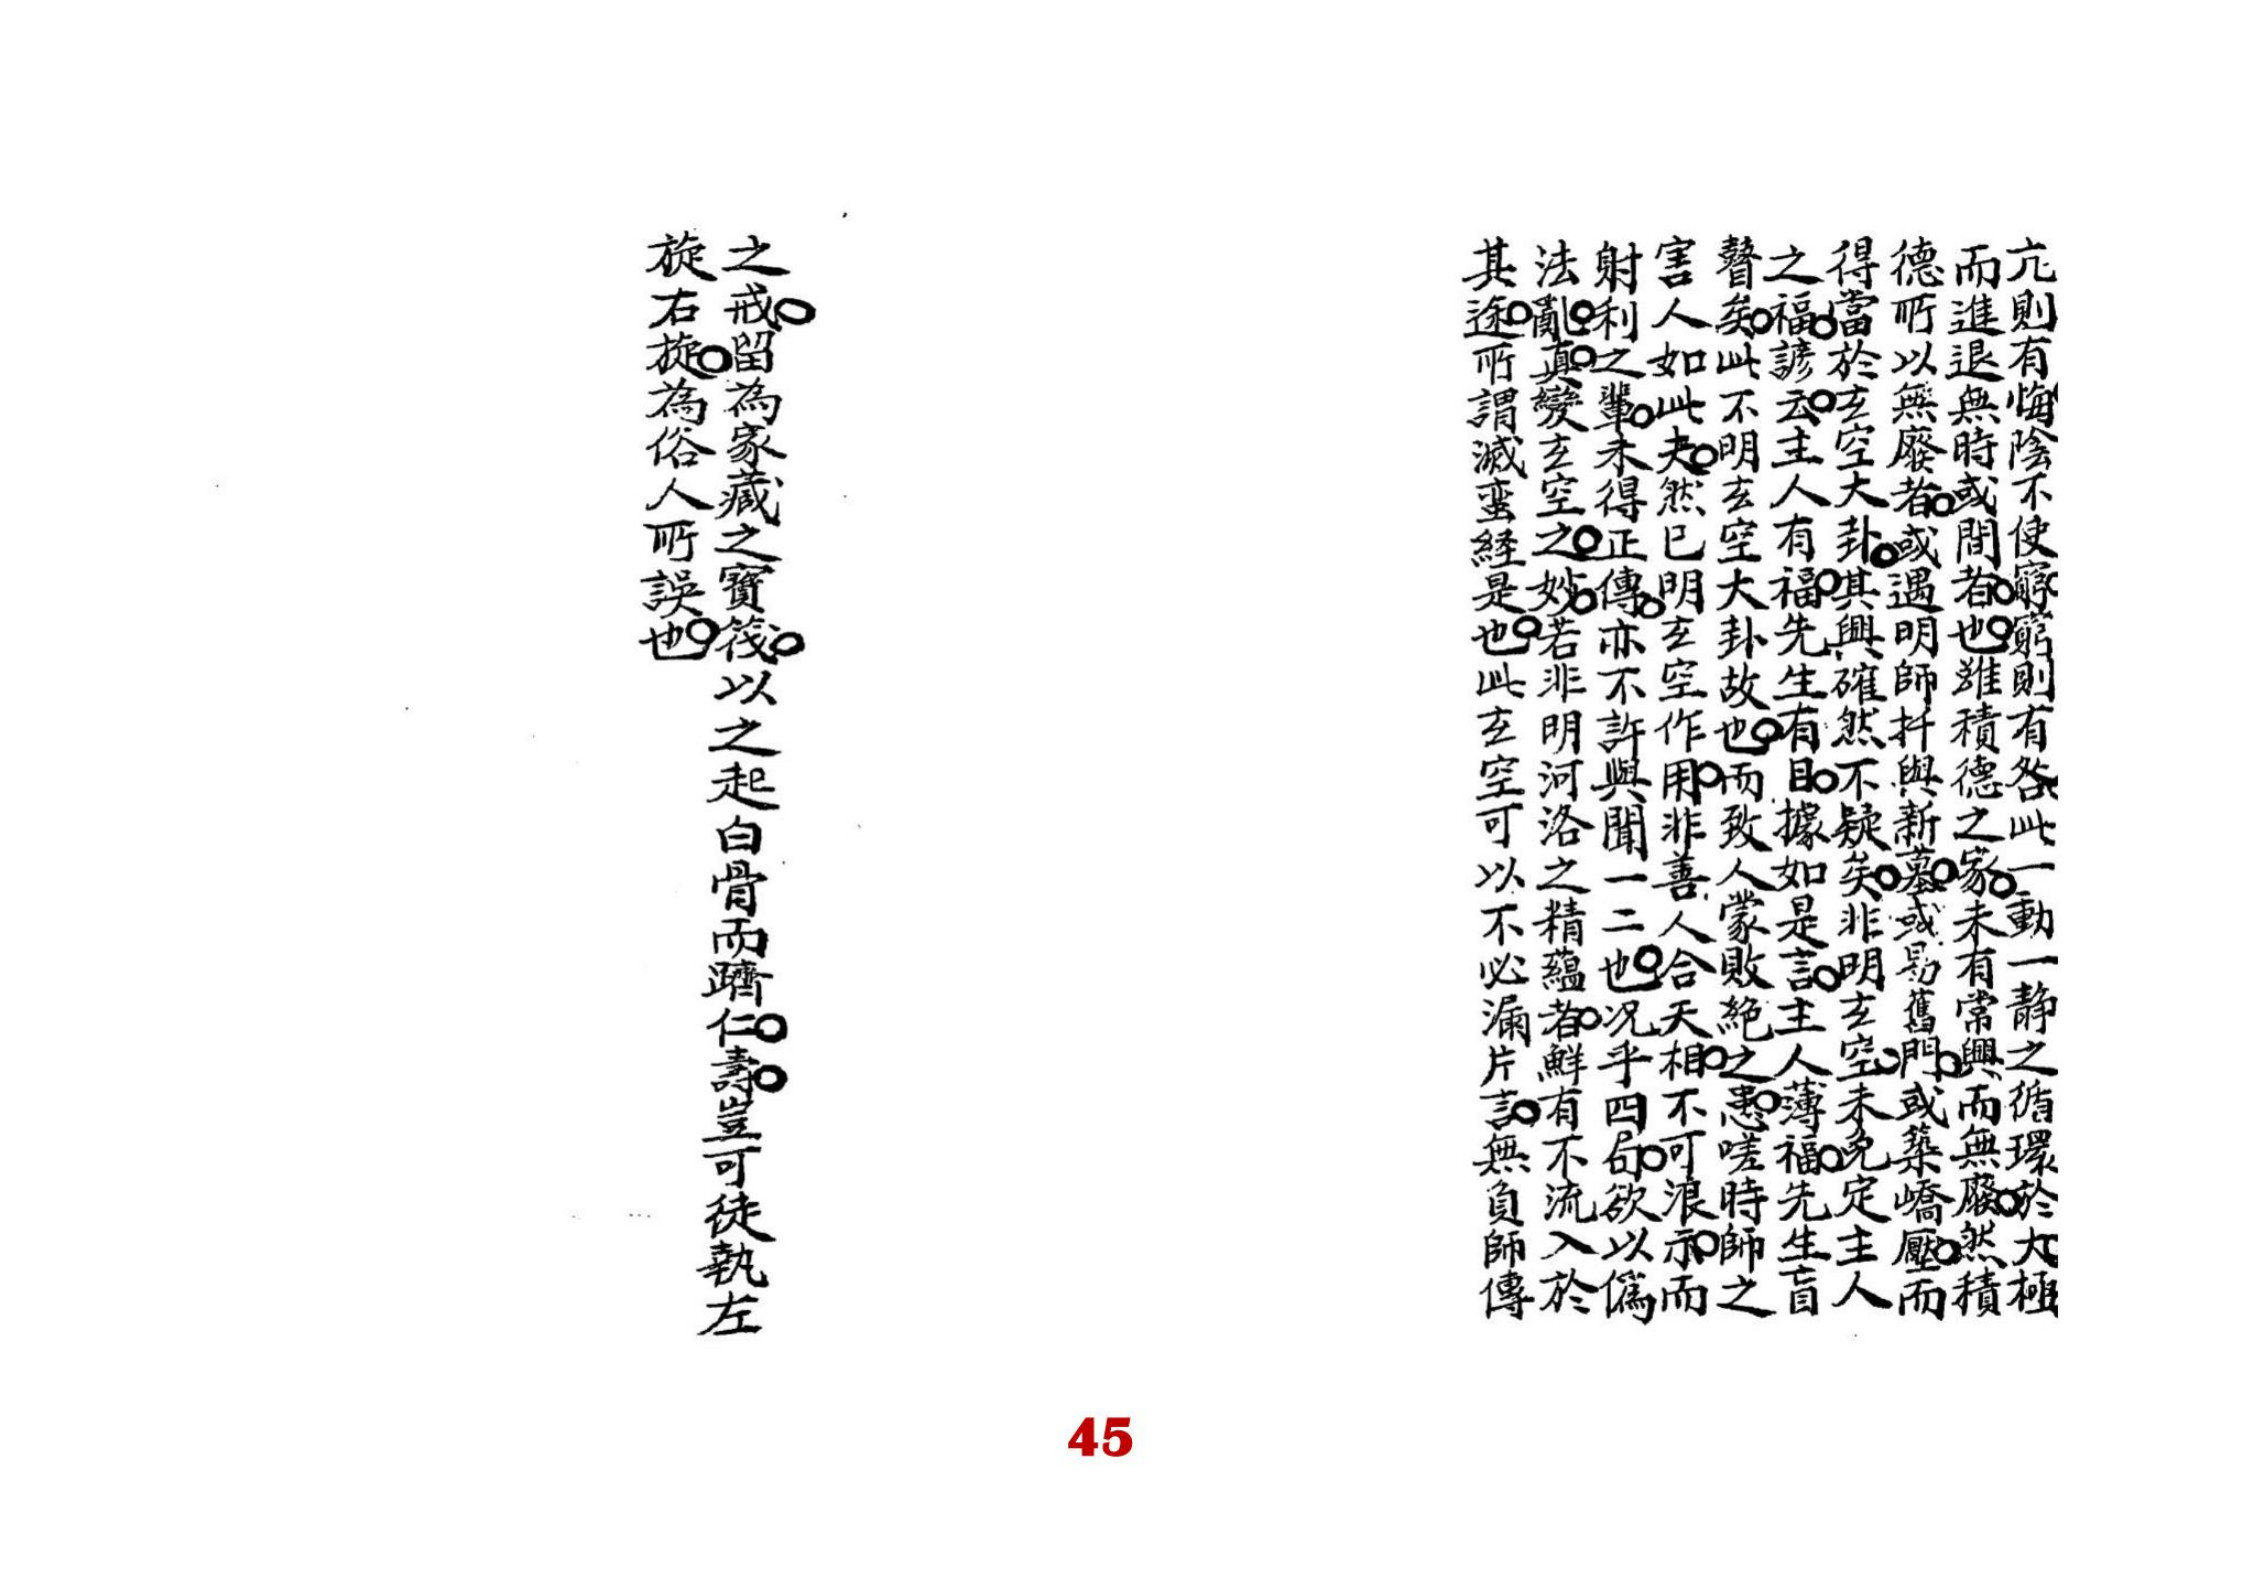 亢則有悔陰不使窮窮則有咎此一動一静之循環於大極
而進退無時或間者也雖積德之家未有常興而無廢然積
德所以無廢者或遇明師扦與新墓或易舊門或築嶠壓而
得當於玄空大卦其興確然不疑矣非明玄空未免定主人
之福諺云主人有福先生有目據如是言主人薄福先生盲
瞽矣此不明玄空大卦故也而致人蒙敗絶之患嗟時師之
害人如此夫然已明玄空作用非善人合天相不可浪示而
射利之輩未得正傳亦不許與聞一二也况乎四句欲以僞
法亂真變玄空之妙若非明河洛之精蘊者鮮有不流入於
其途所謂滅蛮経是也此玄空可以不必漏片言無負師傳
之戒留為家藏之寶筏以之起白骨而躋仁壽豈可徒執左
旋右旋為俗人所誤也
45